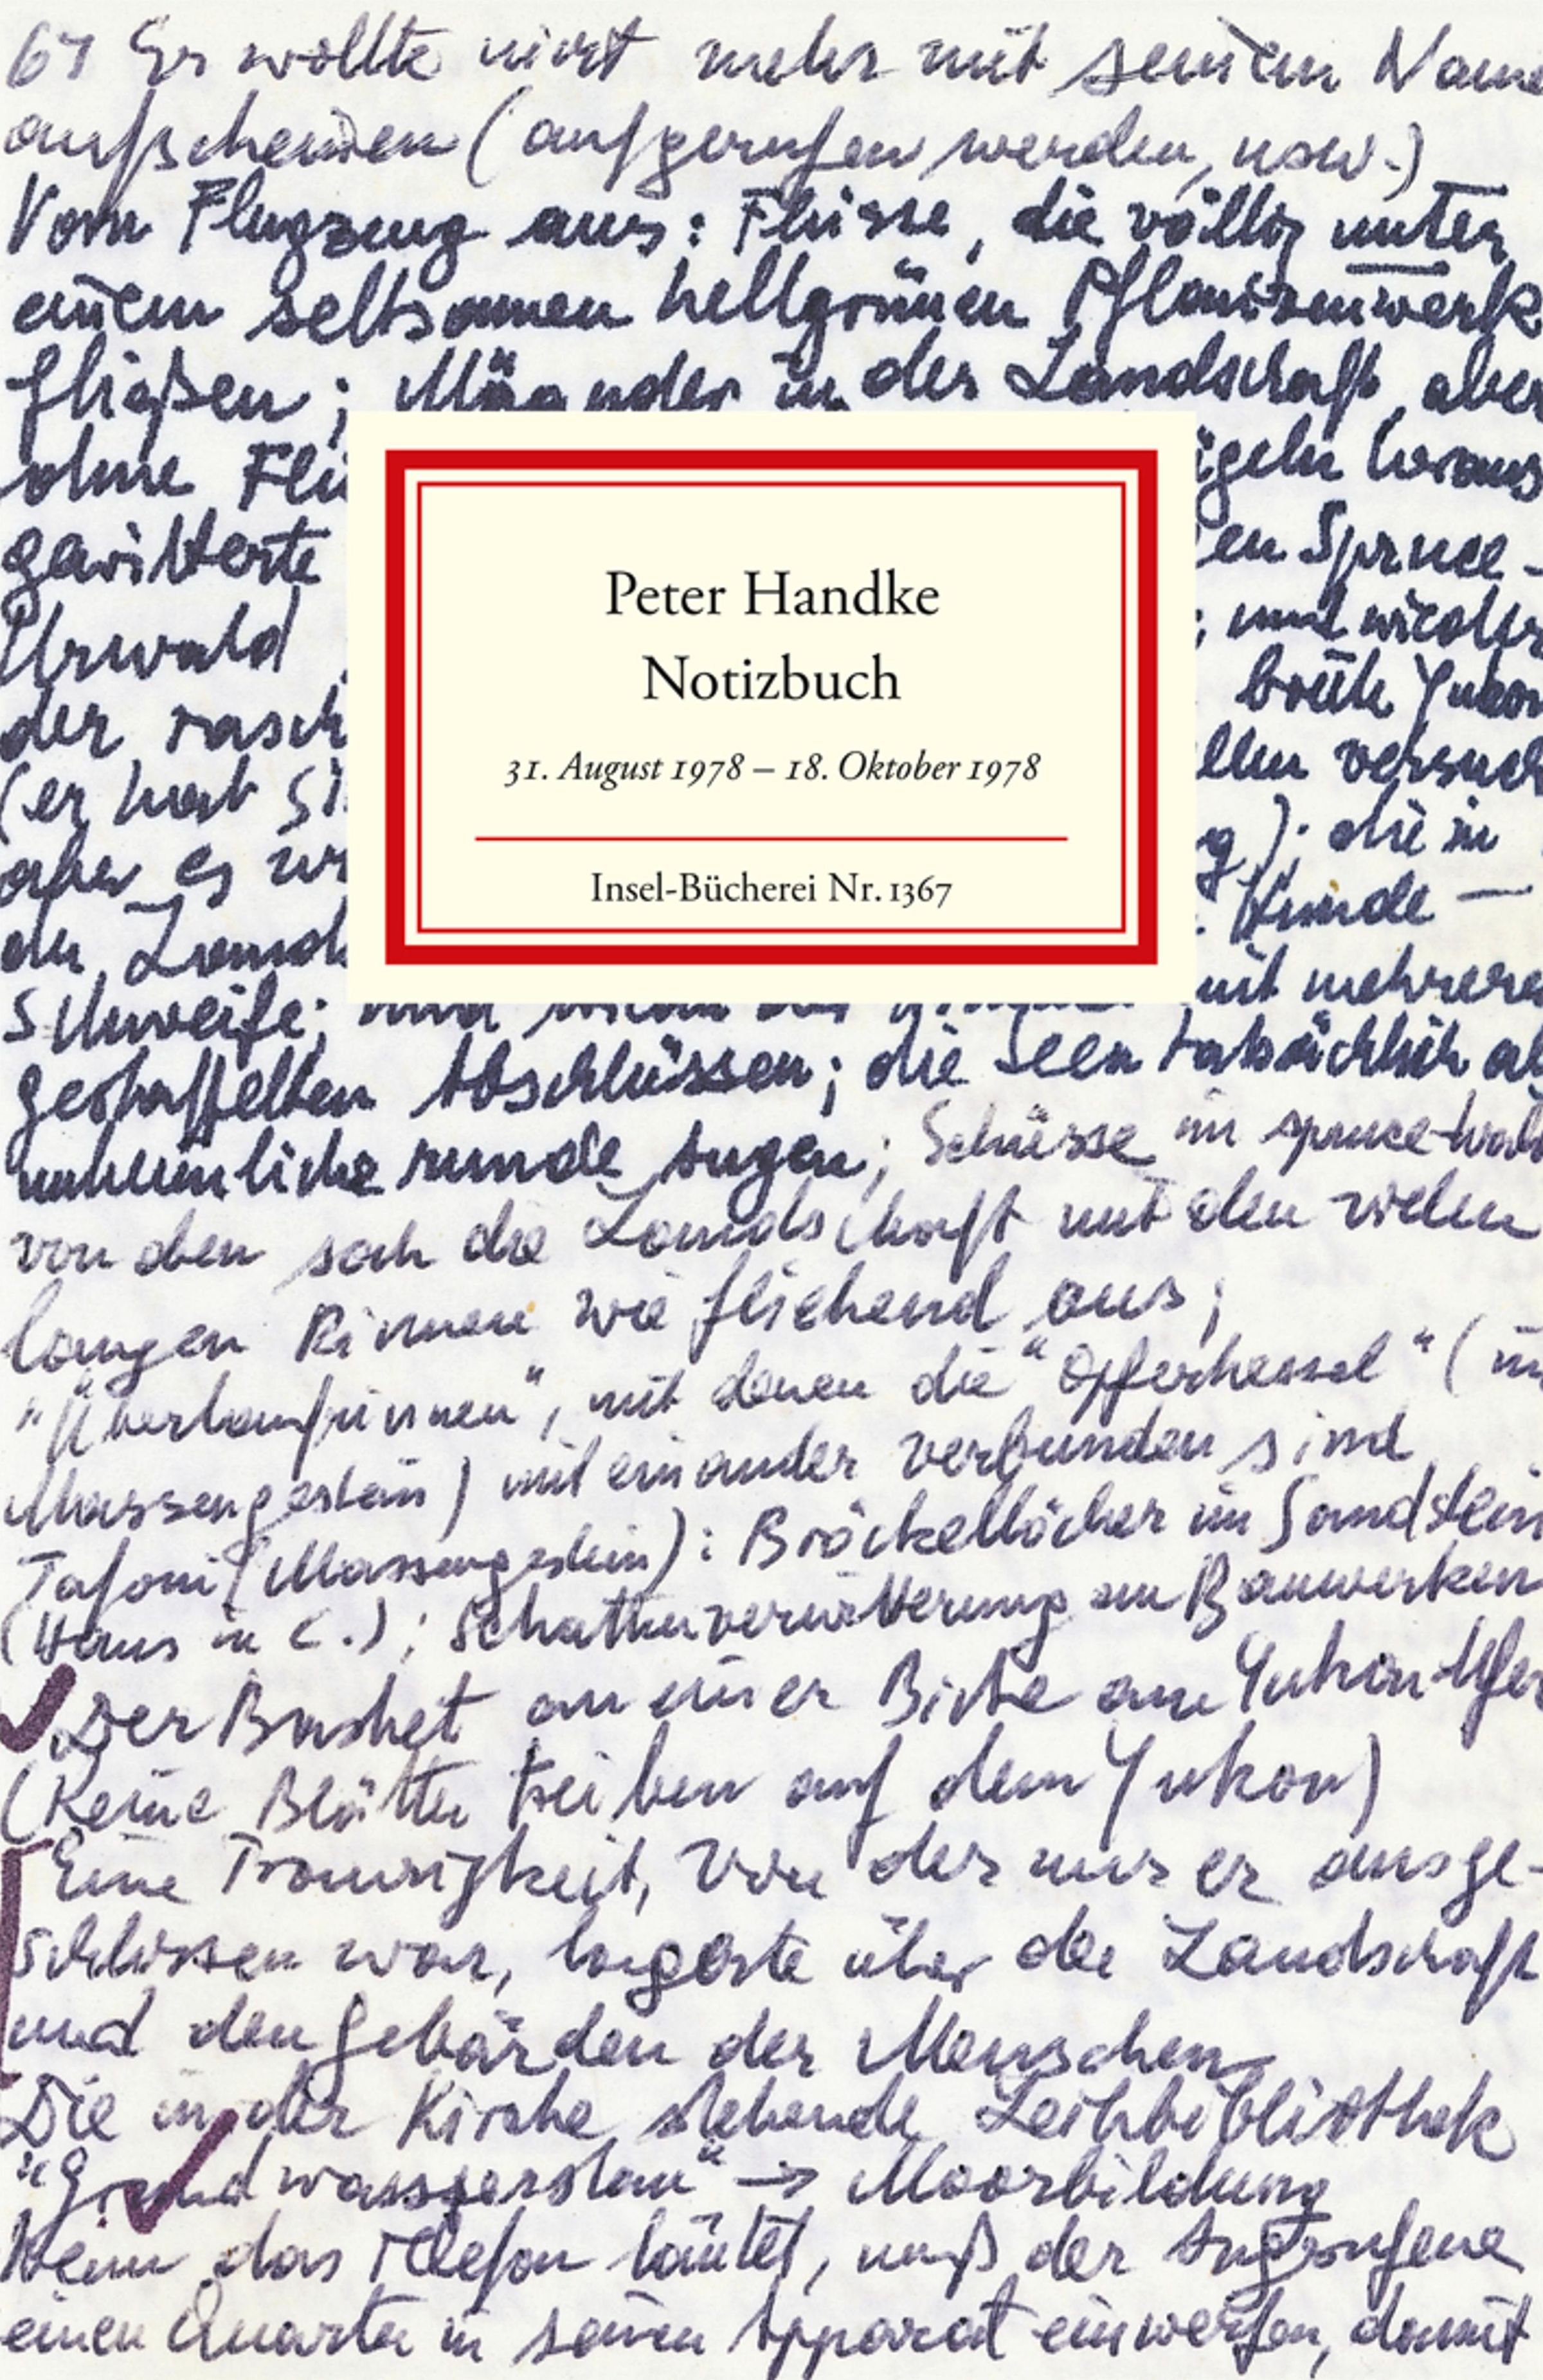 67 Er wollte nicht mehr mit seinem Name
aufscheinen (aufgerufen werden, usw.)
Vom Flugzeug aus: Flüsse, die völlig unter
einem seltsamen hellgrünen Pflanzenwerk
fließen; Mäander in der Landschaft, aber
ohne Flü
geln heraus
gewitterte
en Spruce-
Urwald
; und wieder
der rasch
breite Yukon
(er hat si
llen versuch
aber es
g); die in
der Land
Hunde —
Schweife; mit mehrere
gestaffelten Abschlüssen; die Seen tatsächlich al
unheimliche runde Augen; Schüsse im spruce-Wald
von oben sah die Landschaft mit den vielen
langen Rinnen wie fliehend aus;
"Überlaufrinnen", mit denen die "Opferkessel" (im
Massengestein) miteinander verbunden sind
Tafoni (Massengestein): Bröckellöcher im Sandstein
(Haus in C.); Schattenverwitterung an Bauwerken
Der Basket an einer Birke am Yukon-Ufer
(Keine Blätter treiben auf dem Yukon)
Eine Traurigkeit, von der nur er ausge-
schlossen war, lagerte über der Landschaft
und den Gebärden der Menschen
Die in der Kirche stehende Leihbibliothek
"Grundwasserstau" → Moorbildung
Wenn das Telefon läutet, muß der Angerufene
einen Quarter in seinen Apparat einwerfen, damit
Peter Handke
Notizbuch
31. August 1978 – 18. Oktober 1978
Insel-Bücherei Nr. 1367